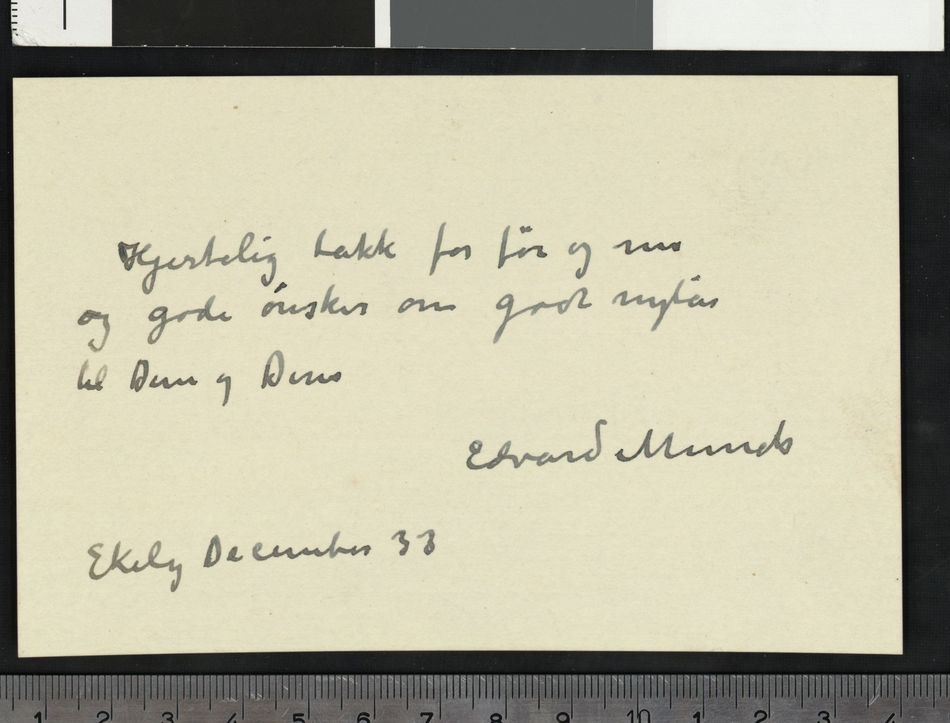 Hjertelig takk for før og nu
og gode ønsker om godt nytår
til Dem og Deres
Edvard Munch
Ekely December 33
1 2 3 4 5 6 7 8 9 10 1 2 3 4